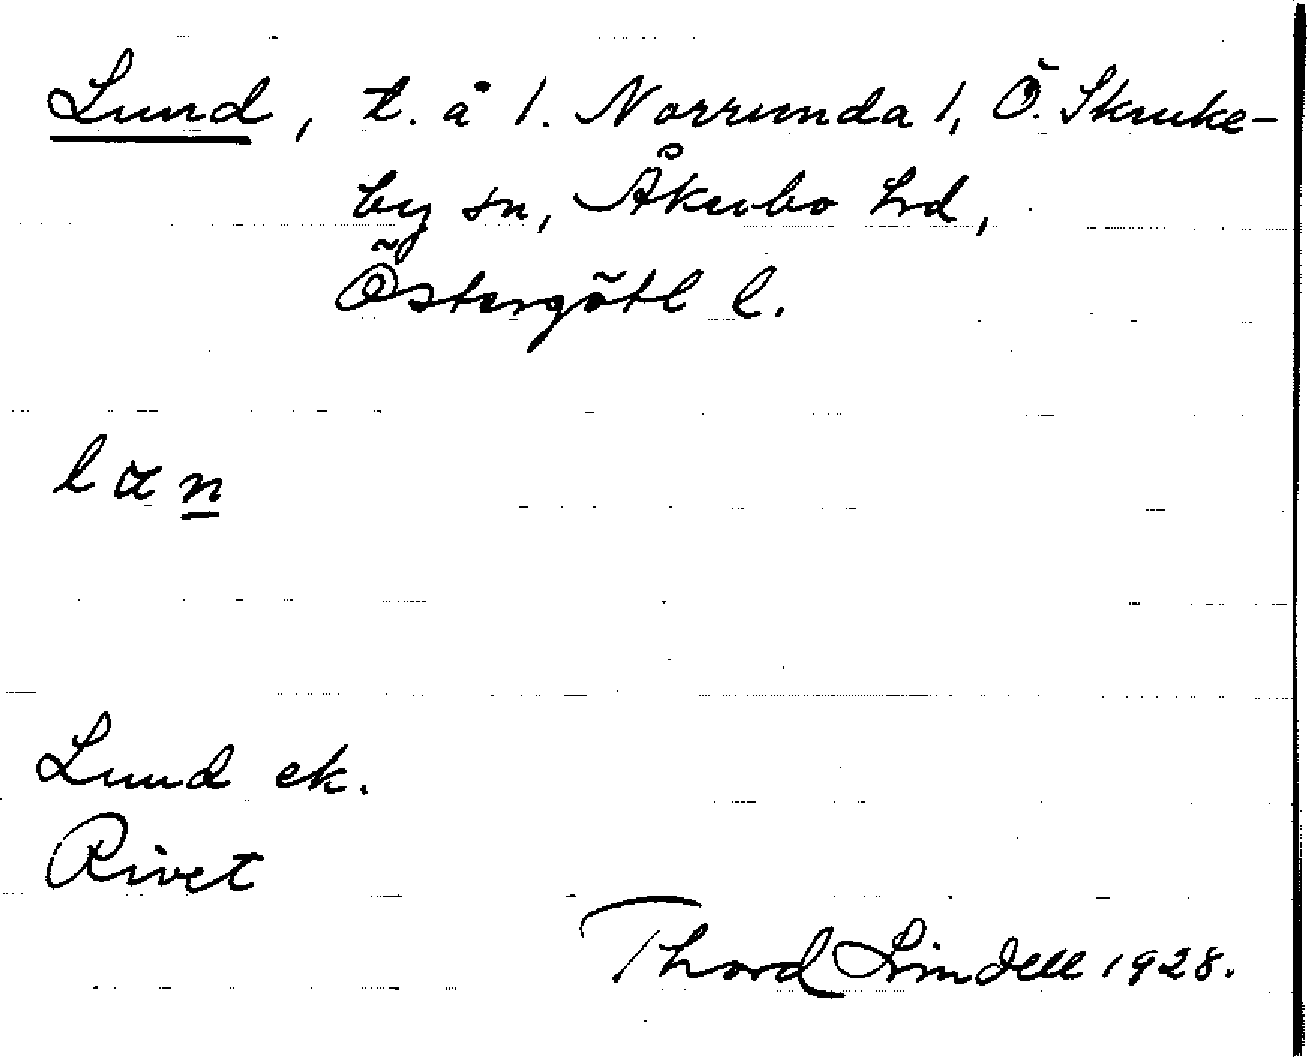 Lund, t. å 1. Norrunda 1, Ö. Skruke-
by sn, Åkerbo hrd,
Östergötl l.
lan
Lund ek.
Rivet
Thord Lindell 1928.